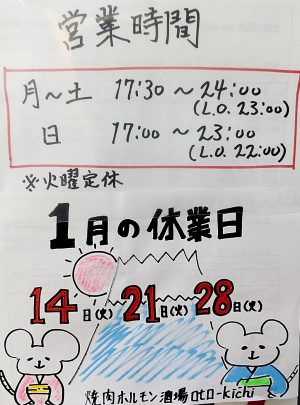 営業時間
月～土 17:30 ～ 24:00
(L.O. 23:00)
日 17:00 ～ 23:00
(L.O. 22:00)
※火曜定休
1月の休業日
14日(火) 21日(火) 28日(火)
焼肉ホルモン酒場oto-kichi